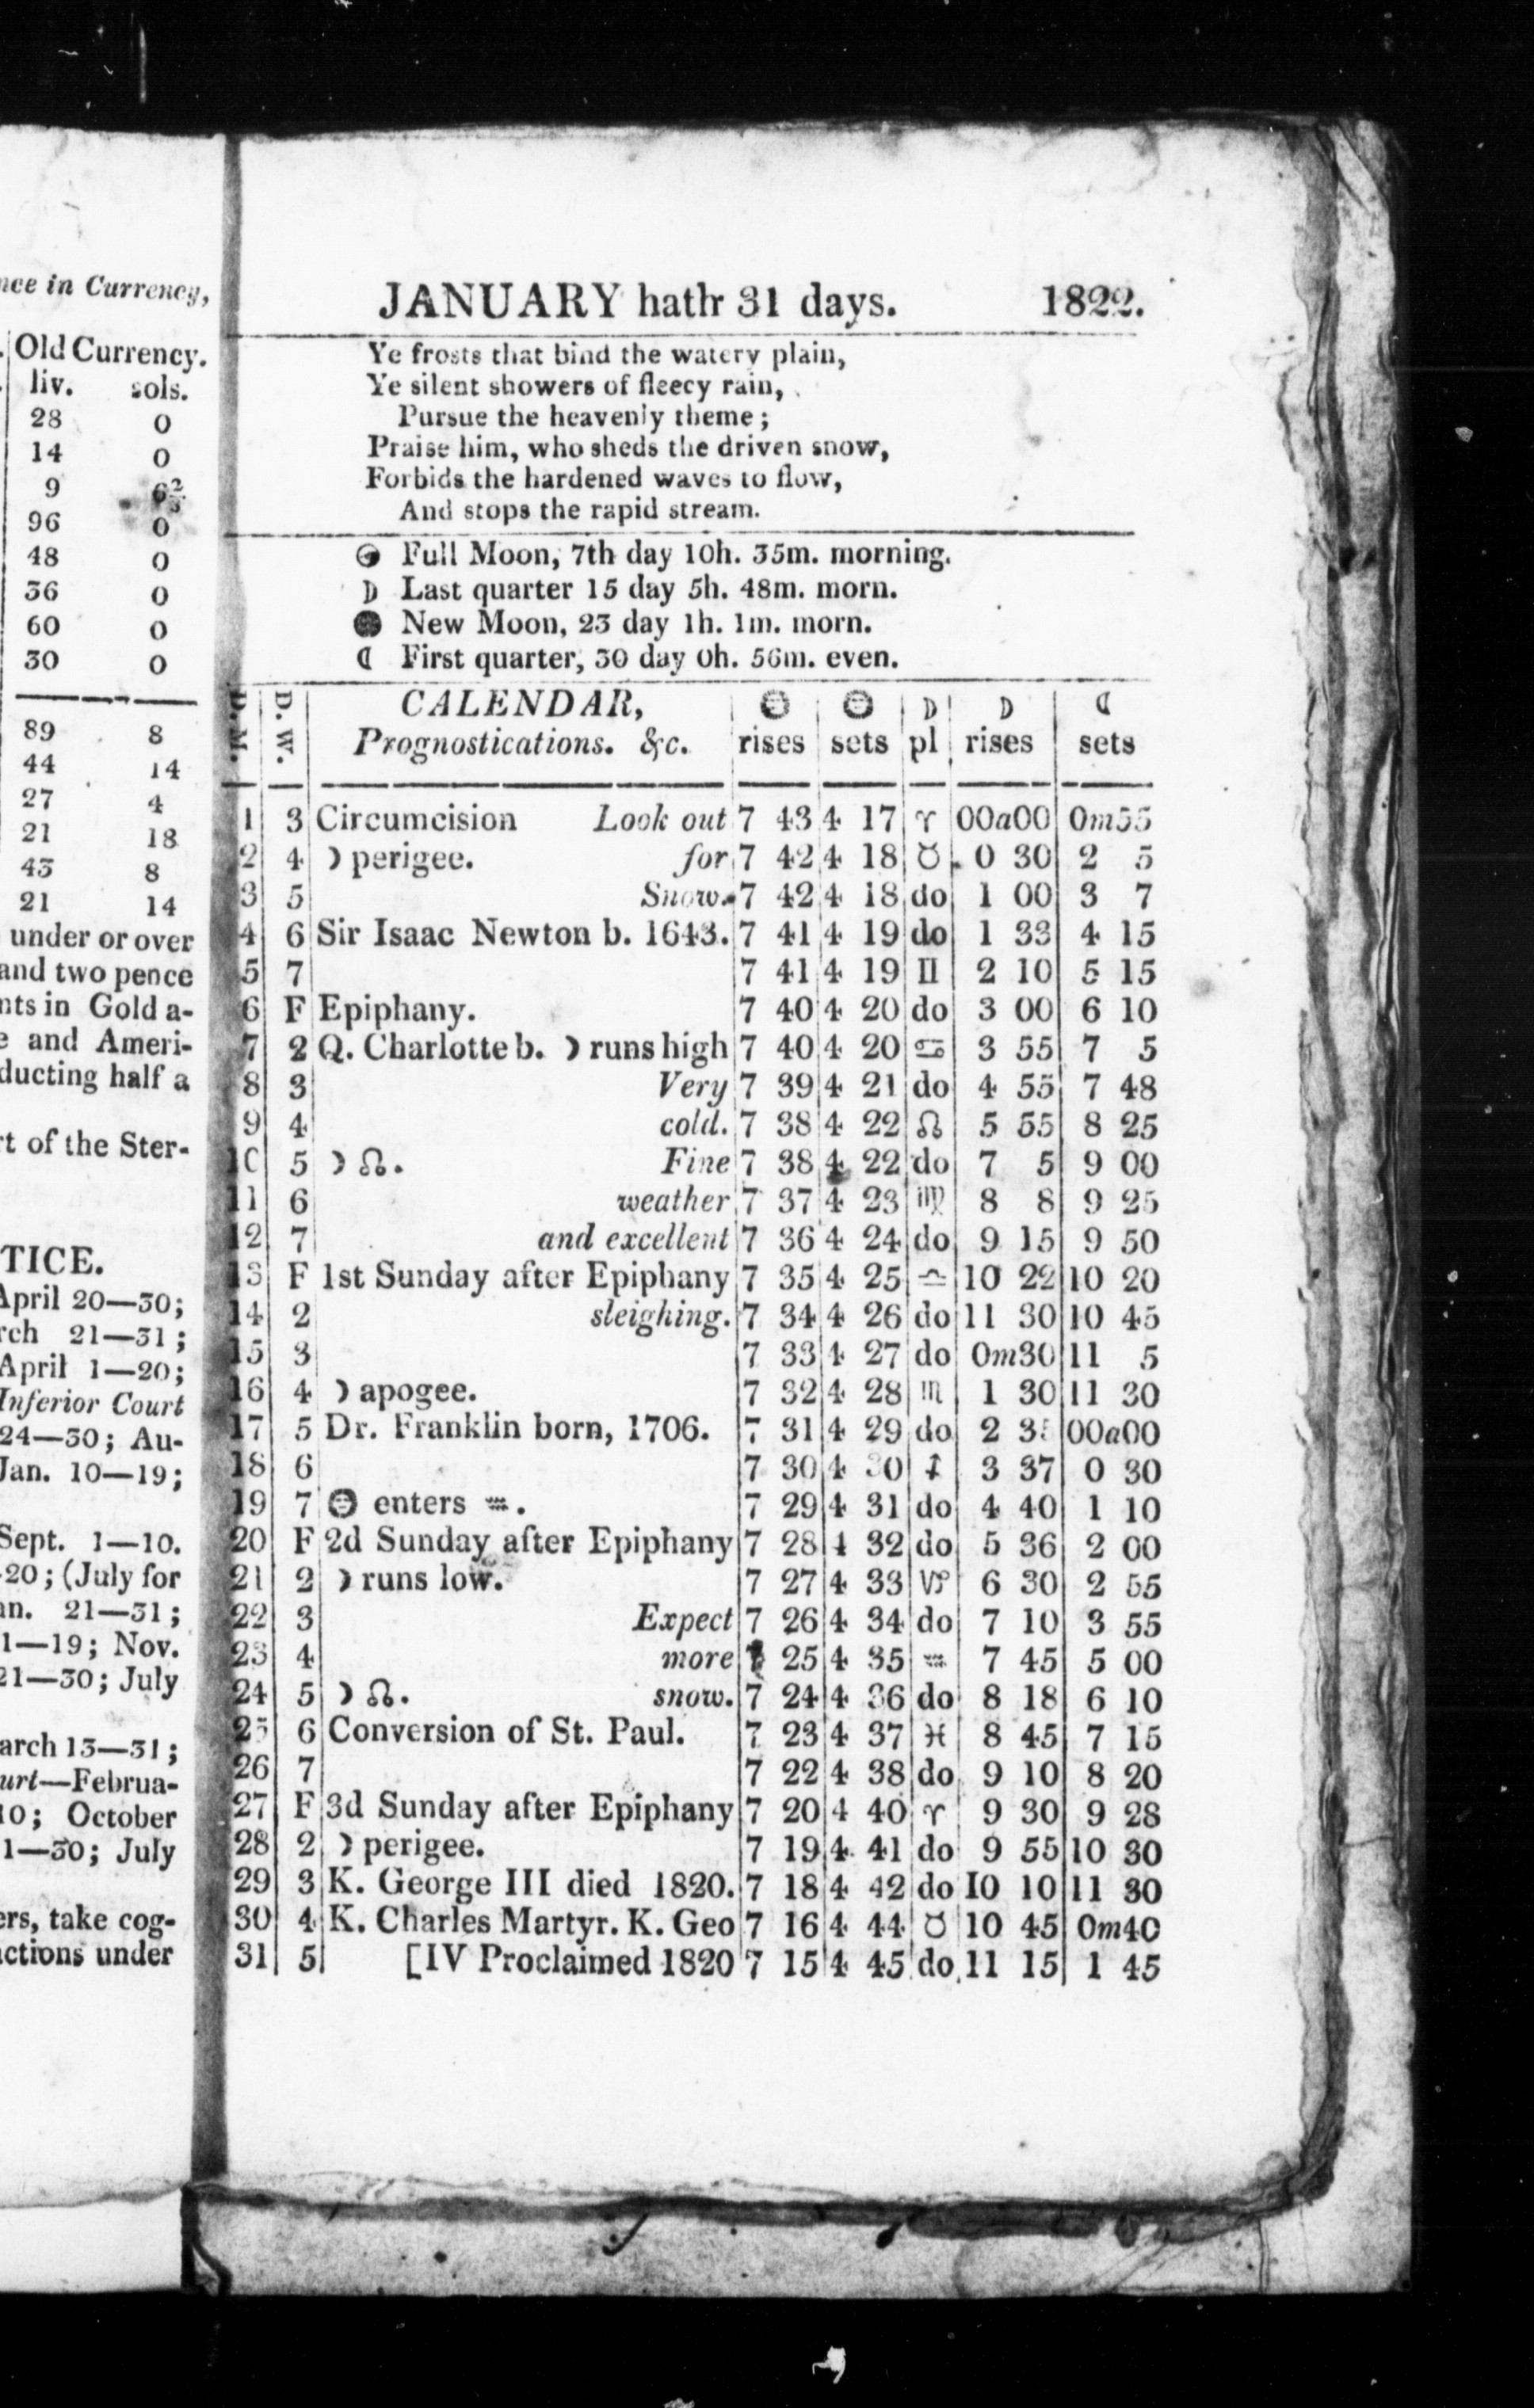 nce in Currency,
Old Currency.
liv. sols.
28 0
14 0
9 6⅔
96 0
48 0
36 0
60 0
30 0
89 8
44 14
27 4
21 18
43 8
21 14
under or over
and two pence
nts in Gold a-
e and Ameri-
ducting half a
rt of the Ster-
TICE.
April 20—30;
rch 21—31;
April 1—20;
Inferior Court
24—30; Au-
Jan. 10—19;
Sept. 1—10.
20; (July for
an. 21—31;
1—19; Nov.
21—30; July
arch 13—31;
urt—Februa-
10; October
1—30; July
ers, take cog-
actions under
JANUARY hath 31 days. 1822.
Ye frosts that bind the watery plain,
Ye silent showers of fleecy rain,
Pursue the heavenly theme;
Praise him, who sheds the driven snow,
Forbids the hardened waves to flow,
And stops the rapid stream.
Full Moon, 7th day 10h. 35m. morning.
☽ Last quarter 15 day 5h. 48m. morn.
● New Moon, 23 day 1h. 1m. morn.
☾ First quarter, 30 day 0h. 56m. even.
D. M. D. W. CALENDAR, ☉ ☉ ☽ ☽ ☾
Prognostications. &c. rises sets pl rises sets
1 3 Circumcision Look out 7 43 4 17 ♈ 00a00 0m55
2 4 ☽ perigee. for 7 42 4 18 ♉ 0 30 2 5
3 5 Snow. 7 42 4 18 do 1 00 3 7
4 6 Sir Isaac Newton b. 1643. 7 41 4 19 do 1 33 4 15
5 7 7 41 4 19 II 2 10 5 15
6 F Epiphany. 7 40 4 20 do 3 00 6 10
7 2 Q. Charlotte b. ☽ runs high 7 40 4 20 ♋ 3 55 7 5
8 3 Very 7 39 4 21 do 4 55 7 48
9 4 cold. 7 38 4 22 ☊ 5 55 8 25
10 5 ☽ ☊. Fine 7 38 4 22 do 7 5 9 00
11 6 weather 7 37 4 23 ♍ 8 8 9 25
12 7 and excellent 7 36 4 24 do 9 15 9 50
13 F 1st Sunday after Epiphany 7 35 4 25 ♎ 10 22 10 20
14 2 sleighing. 7 34 4 26 do 11 30 10 45
15 3 7 33 4 27 do 0m30 11 5
16 4 ☽ apogee. 7 32 4 28 ♏ 1 30 11 30
17 5 Dr. Franklin born, 1706. 7 31 4 29 do 2 35 00a00
18 6 7 30 4 30 ♐ 3 37 0 30
19 7 ☉ enters ♒. 7 29 4 31 do 4 40 1 10
20 F 2d Sunday after Epiphany 7 28 4 32 do 5 36 2 00
21 2 ☽ runs low. 7 27 4 33 ♑ 6 30 2 55
22 3 Expect 7 26 4 34 do 7 10 3 55
23 4 more 7 25 4 35 ♒ 7 45 5 00
24 5 ☽ ☊. snow. 7 24 4 36 do 8 18 6 10
25 6 Conversion of St. Paul. 7 23 4 37 ♓ 8 45 7 15
26 7 7 22 4 38 do 9 10 8 20
27 F 3d Sunday after Epiphany 7 20 4 40 ♈ 9 30 9 28
28 2 ☽ perigee. 7 19 4 41 do 9 55 10 30
29 3 K. George III died 1820. 7 18 4 42 do 10 10 11 30
30 4 K. Charles Martyr. K. Geo 7 16 4 44 ♉ 10 45 0m40
31 5 [IV Proclaimed 1820 7 15 4 45 do 11 15 1 45